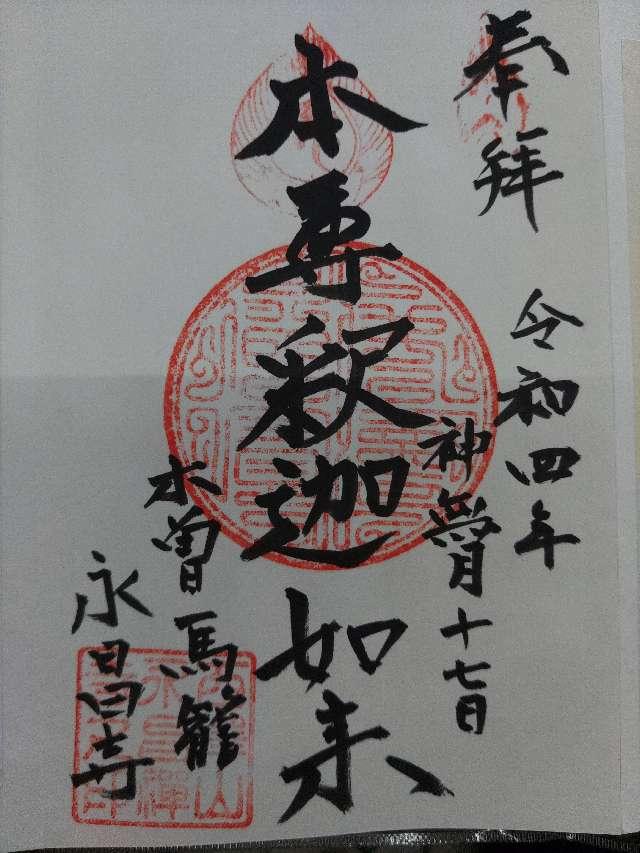 奉拝
令和四年
神無月十七日
本尊釈迦如来
木曽馬籠
永昌寺